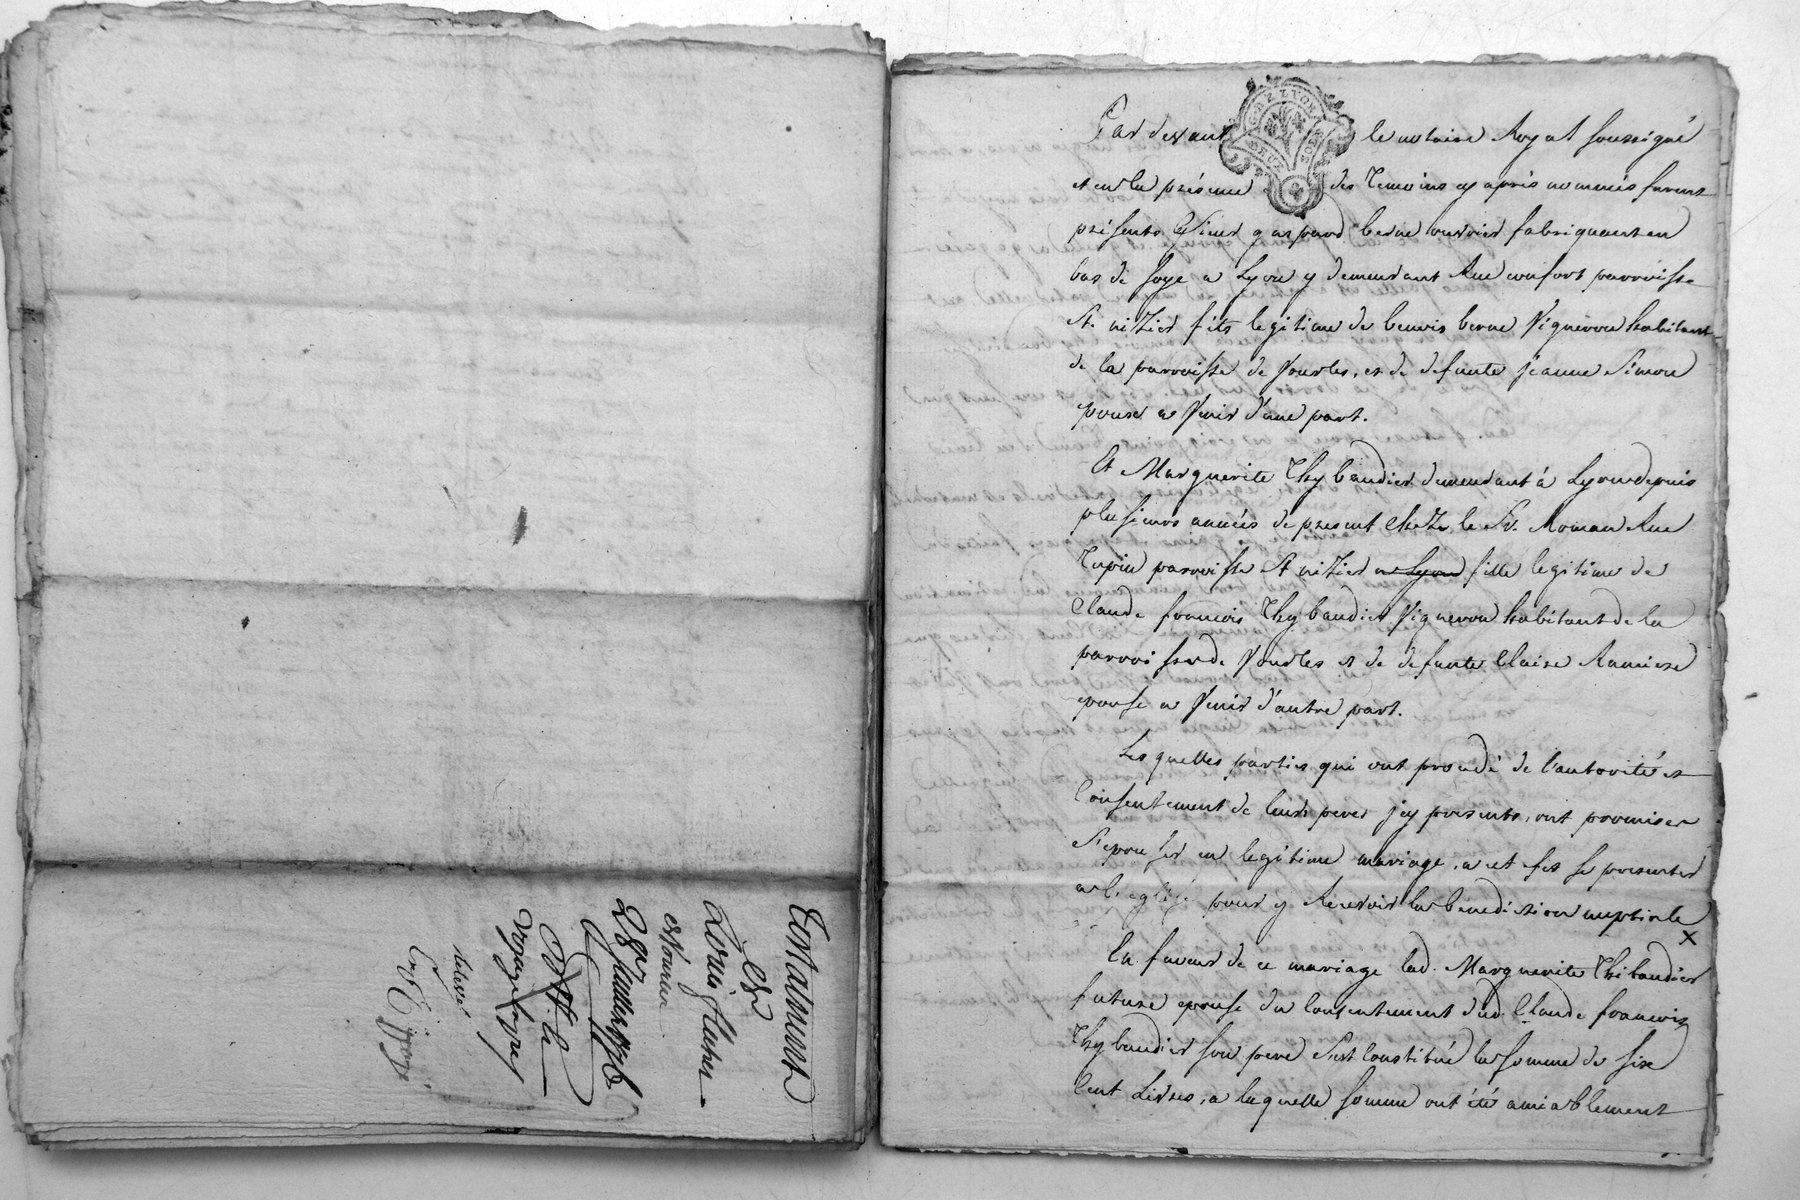 Testament
de
Louis
28e janvier 1776
GEN LYON
DEUX SOLS
Par devant le notaire Royal soussigné
et en la présence des temoins cy après nommés furent
présents Sieur gaspard berne ouvrier fabriquant en
bas de soye a Lyon y demeurant Rue confort parroisse
St. nizier fils legitime de benois berne Vigneron habitant
de la parroisse de Vourles, et de defunte jeanne Simon
epoux a Venir d'une part.
Et Marguerite Thybaudier demeurant à Lyon depuis
plusieurs années de present chez le Sr. Roman Rue
Tupin parroisse St nizier a Lyon fille legitime de
Claude francois Thybaudier Vigneron habitant de la
parroisse de Vourles et de defunte Claire Ramiere
epouse a Venir d'autre part.
Lesquelles parties qui ont procedé de l'autorité et
Consentement de leurs peres jcy presents, ont promis
S'epouser en legitime mariage, a cet fes se presenter
a l'eglise pour y Recevoir la benediction nuptiale x
En faveur de ce mariage lad. Marguerite Thibaudier
future epouse du Consentement dud. Claude francois
Thybaudier son pere S'est Constitué la somme de six
Cent Livres, a laquelle somme ont été amiablement